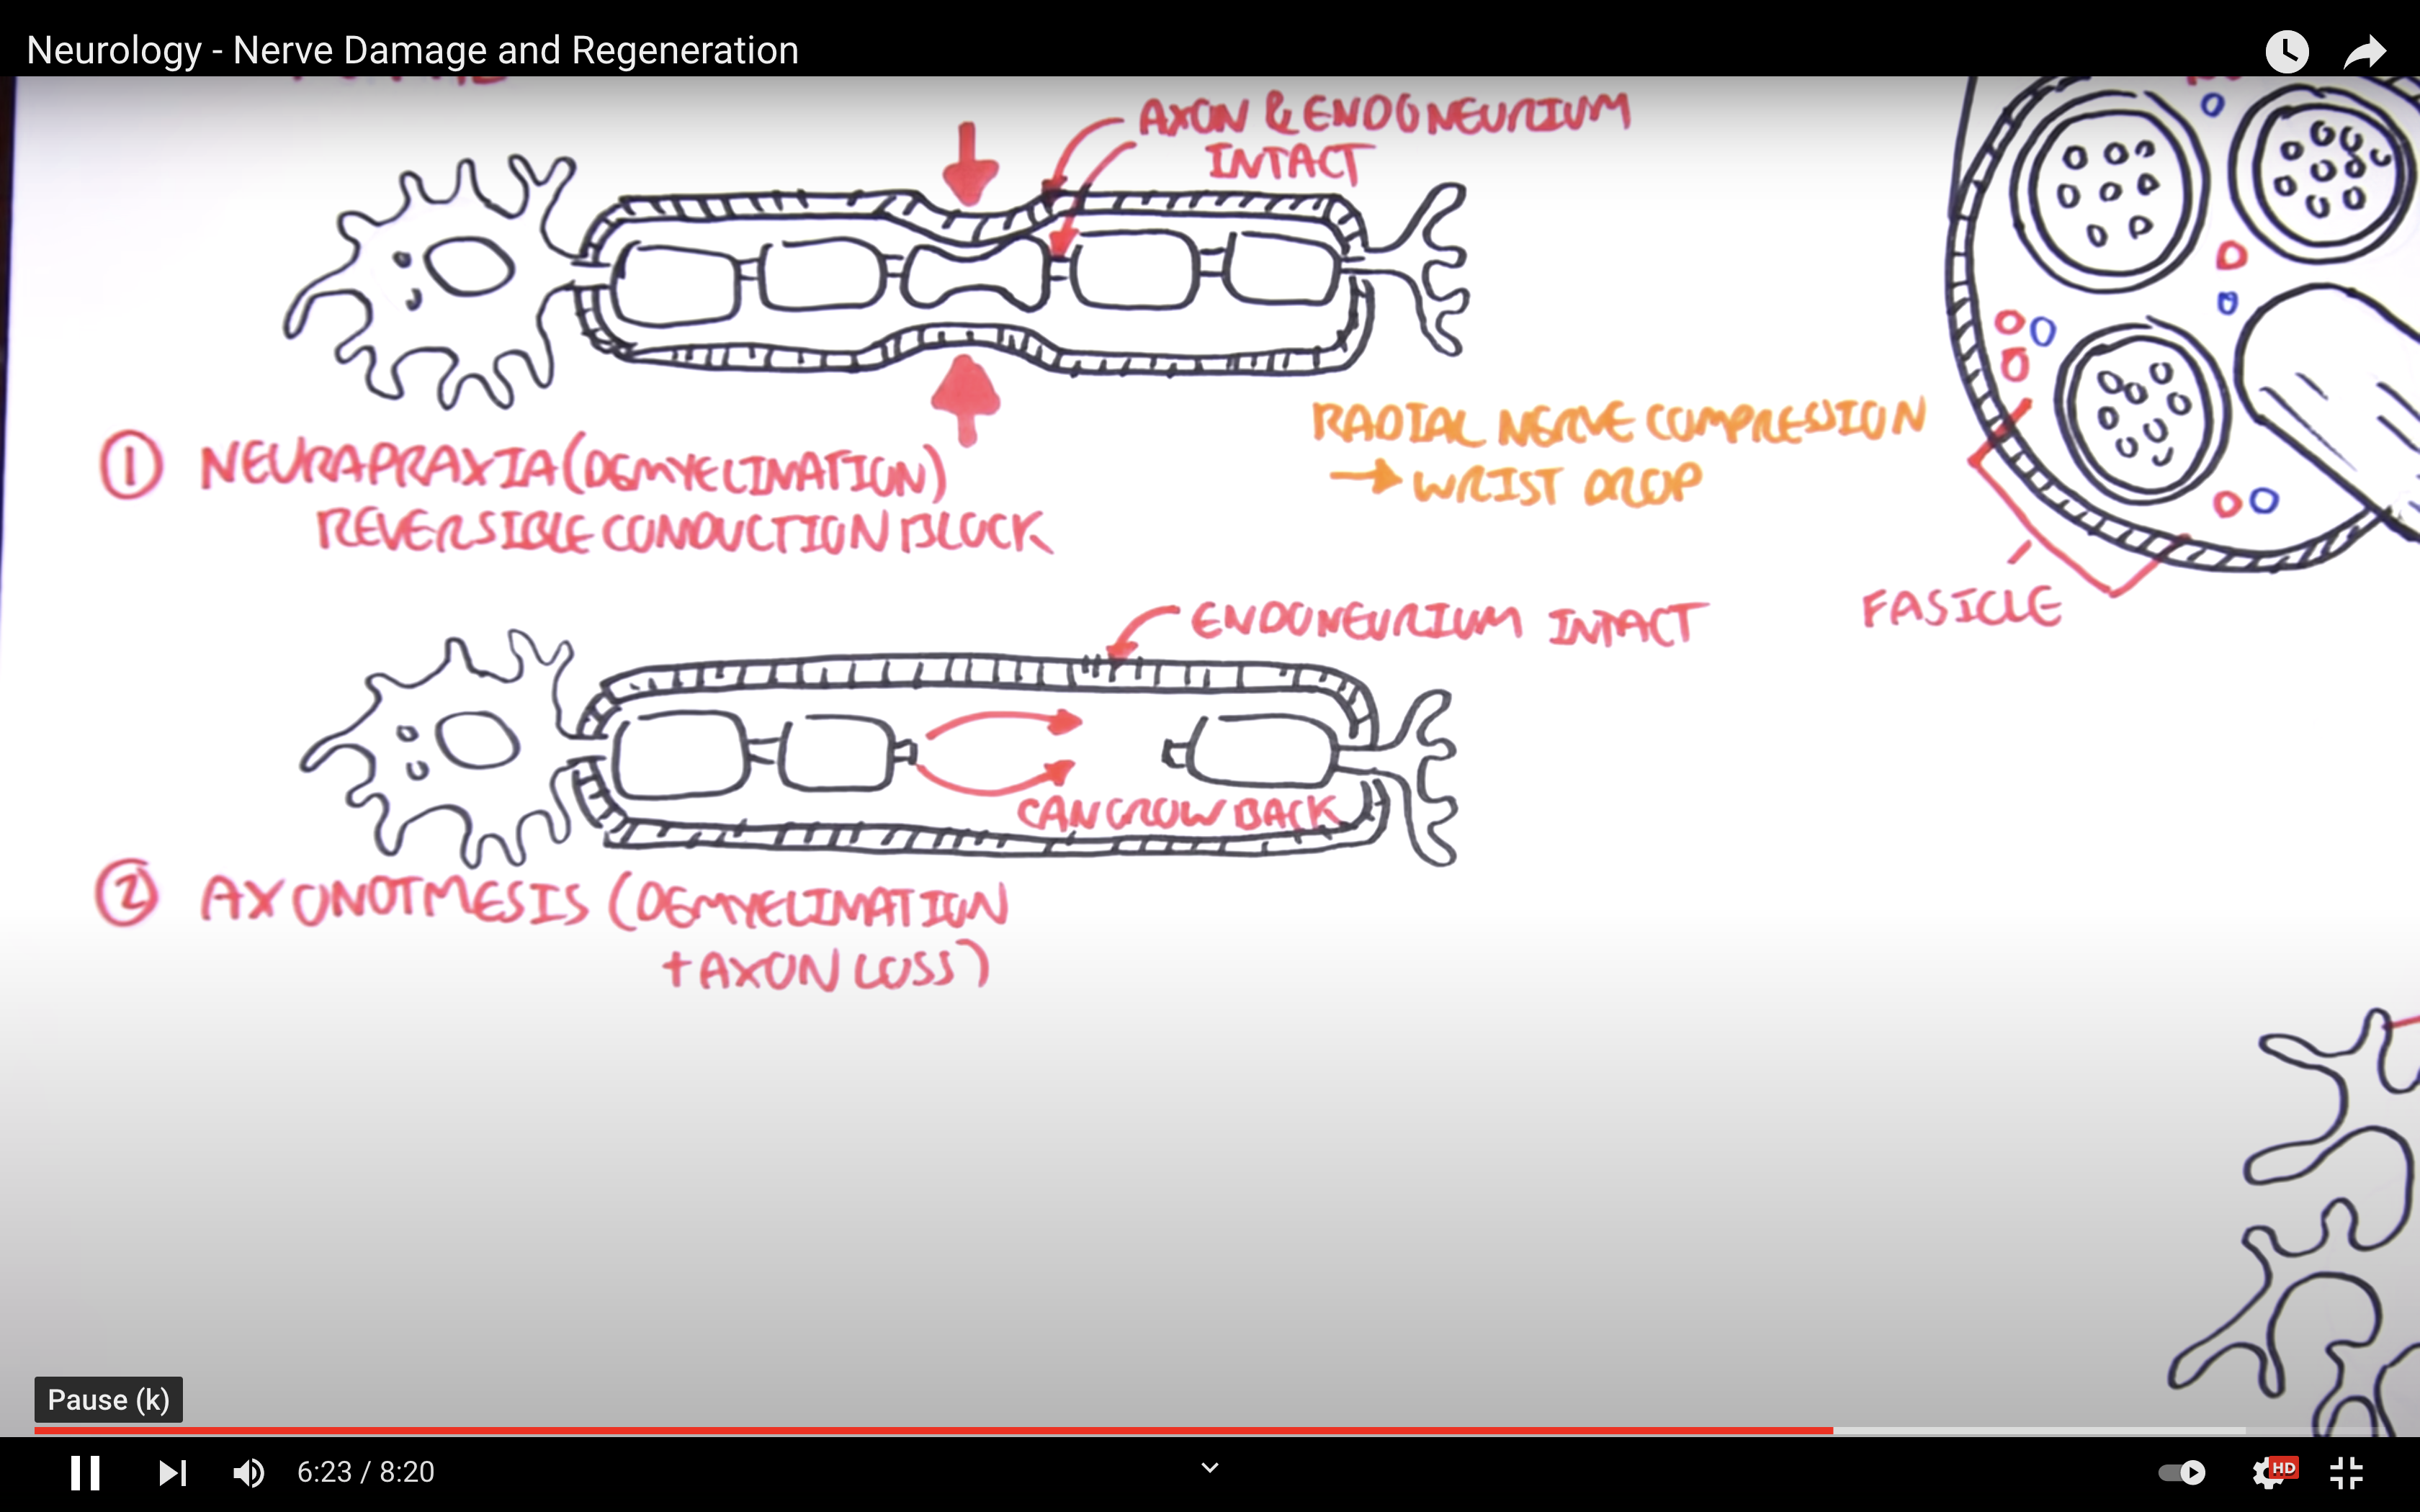 Neurology - Nerve Damage and Regeneration
AXON & ENDONEURIUM
INTACT
① NEURAPRAXIA (DEMYELINATION)
REVERSIBLE CONDUCTION BLOCK
RADIAL NERVE COMPRESSION
→ WRIST DROP
FASICLE
ENDONEURIUM INTACT
CAN GROW BACK
② AXONOTMESIS (DEMYELINATION
+ AXON LOSS)
Pause (k)
6:23 / 8:20
HD